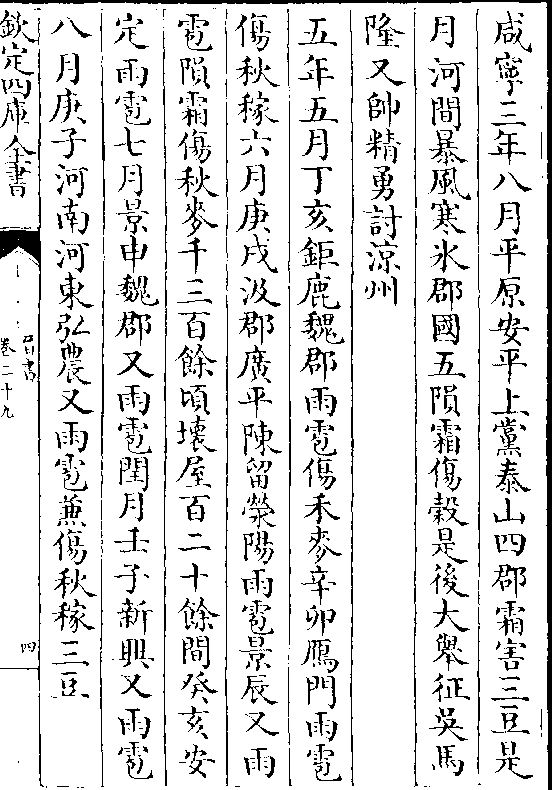 咸寧三年八月平原安平上黨泰山四郡霜害三豆是
月河間暴風寒氷郡國五隕霜傷穀是後大舉征吳馬
隆又帥精勇討涼州
五年五月丁亥鉅鹿魏郡雨雹傷禾麥辛卯鴈門雨雹
傷秋稼六月庚戌汲郡廣平陳留滎陽雨雹景辰又雨
雹隕霜傷秋麥千三百餘頃壊屋百二十餘間癸亥安
定雨雹七月景申魏郡又雨雹閏月壬子新興又雨雹
八月庚子河南河東弘農又雨雹兼傷秋稼三豆
欽定四庫全書
晉書
卷二十九
四